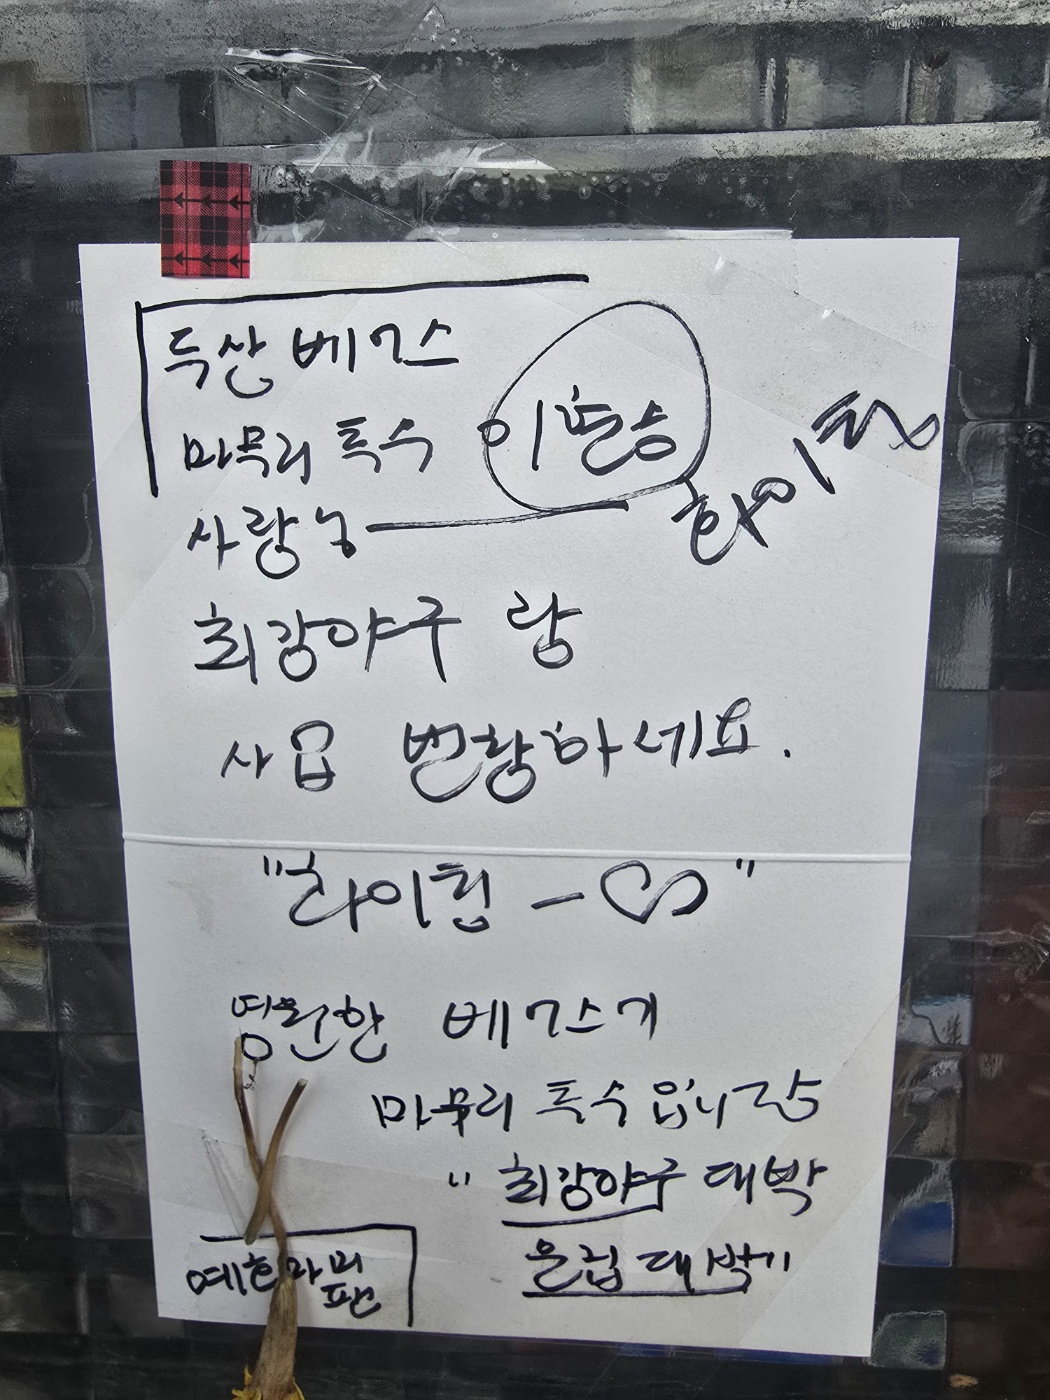 두산 베어스
마무리 투수 이현승
화이팅
사랑
최강야구 랑
사업 번창하세요.
"화이팅 - ♡"
영원한 베어스
마무리 투수입니다
" 최강야구 대박